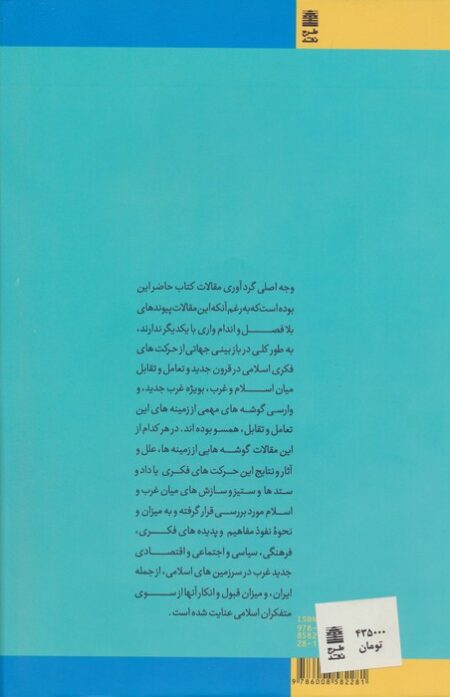 وجه اصلی گردآوری مقالات کتاب حاضر این
بوده است که به رغم آنکه این مقالات پیوندهای
بلا فصل و اندام واری با یکدیگر ندارند،
به طور کلی در باز بینی جهانی از حرکت های
فکری اسلامی در قرون جدید و تعامل و تقابل
میان اسلام و غرب، بویژه غرب جدید، و
وارسی گوشه های مهمی از زمینه های این
تعامل و تقابل، همسو بوده اند. در هر کدام از
این مقالات گوشه هایی از زمینه ها، علل و
آثار و نتایج این حرکت های فکری یا داد و
ستد ها و ستیز و سازش های میان غرب و
اسلام مورد بررسی قرار گرفته و به میزان و
نحوهٔ نفوذ مفاهیم و پدیده های فکری،
فرهنگی، سیاسی و اجتماعی و اقتصادی
جدید غرب در سرزمین های اسلامی، از جمله
ایران، و میزان قبول و انکار آنها از سوی
متفکران اسلامی عنایت شده است.
ISBN
978-
8582
28-1
۴۳۵۰۰۰
تومان
9 786008 582281